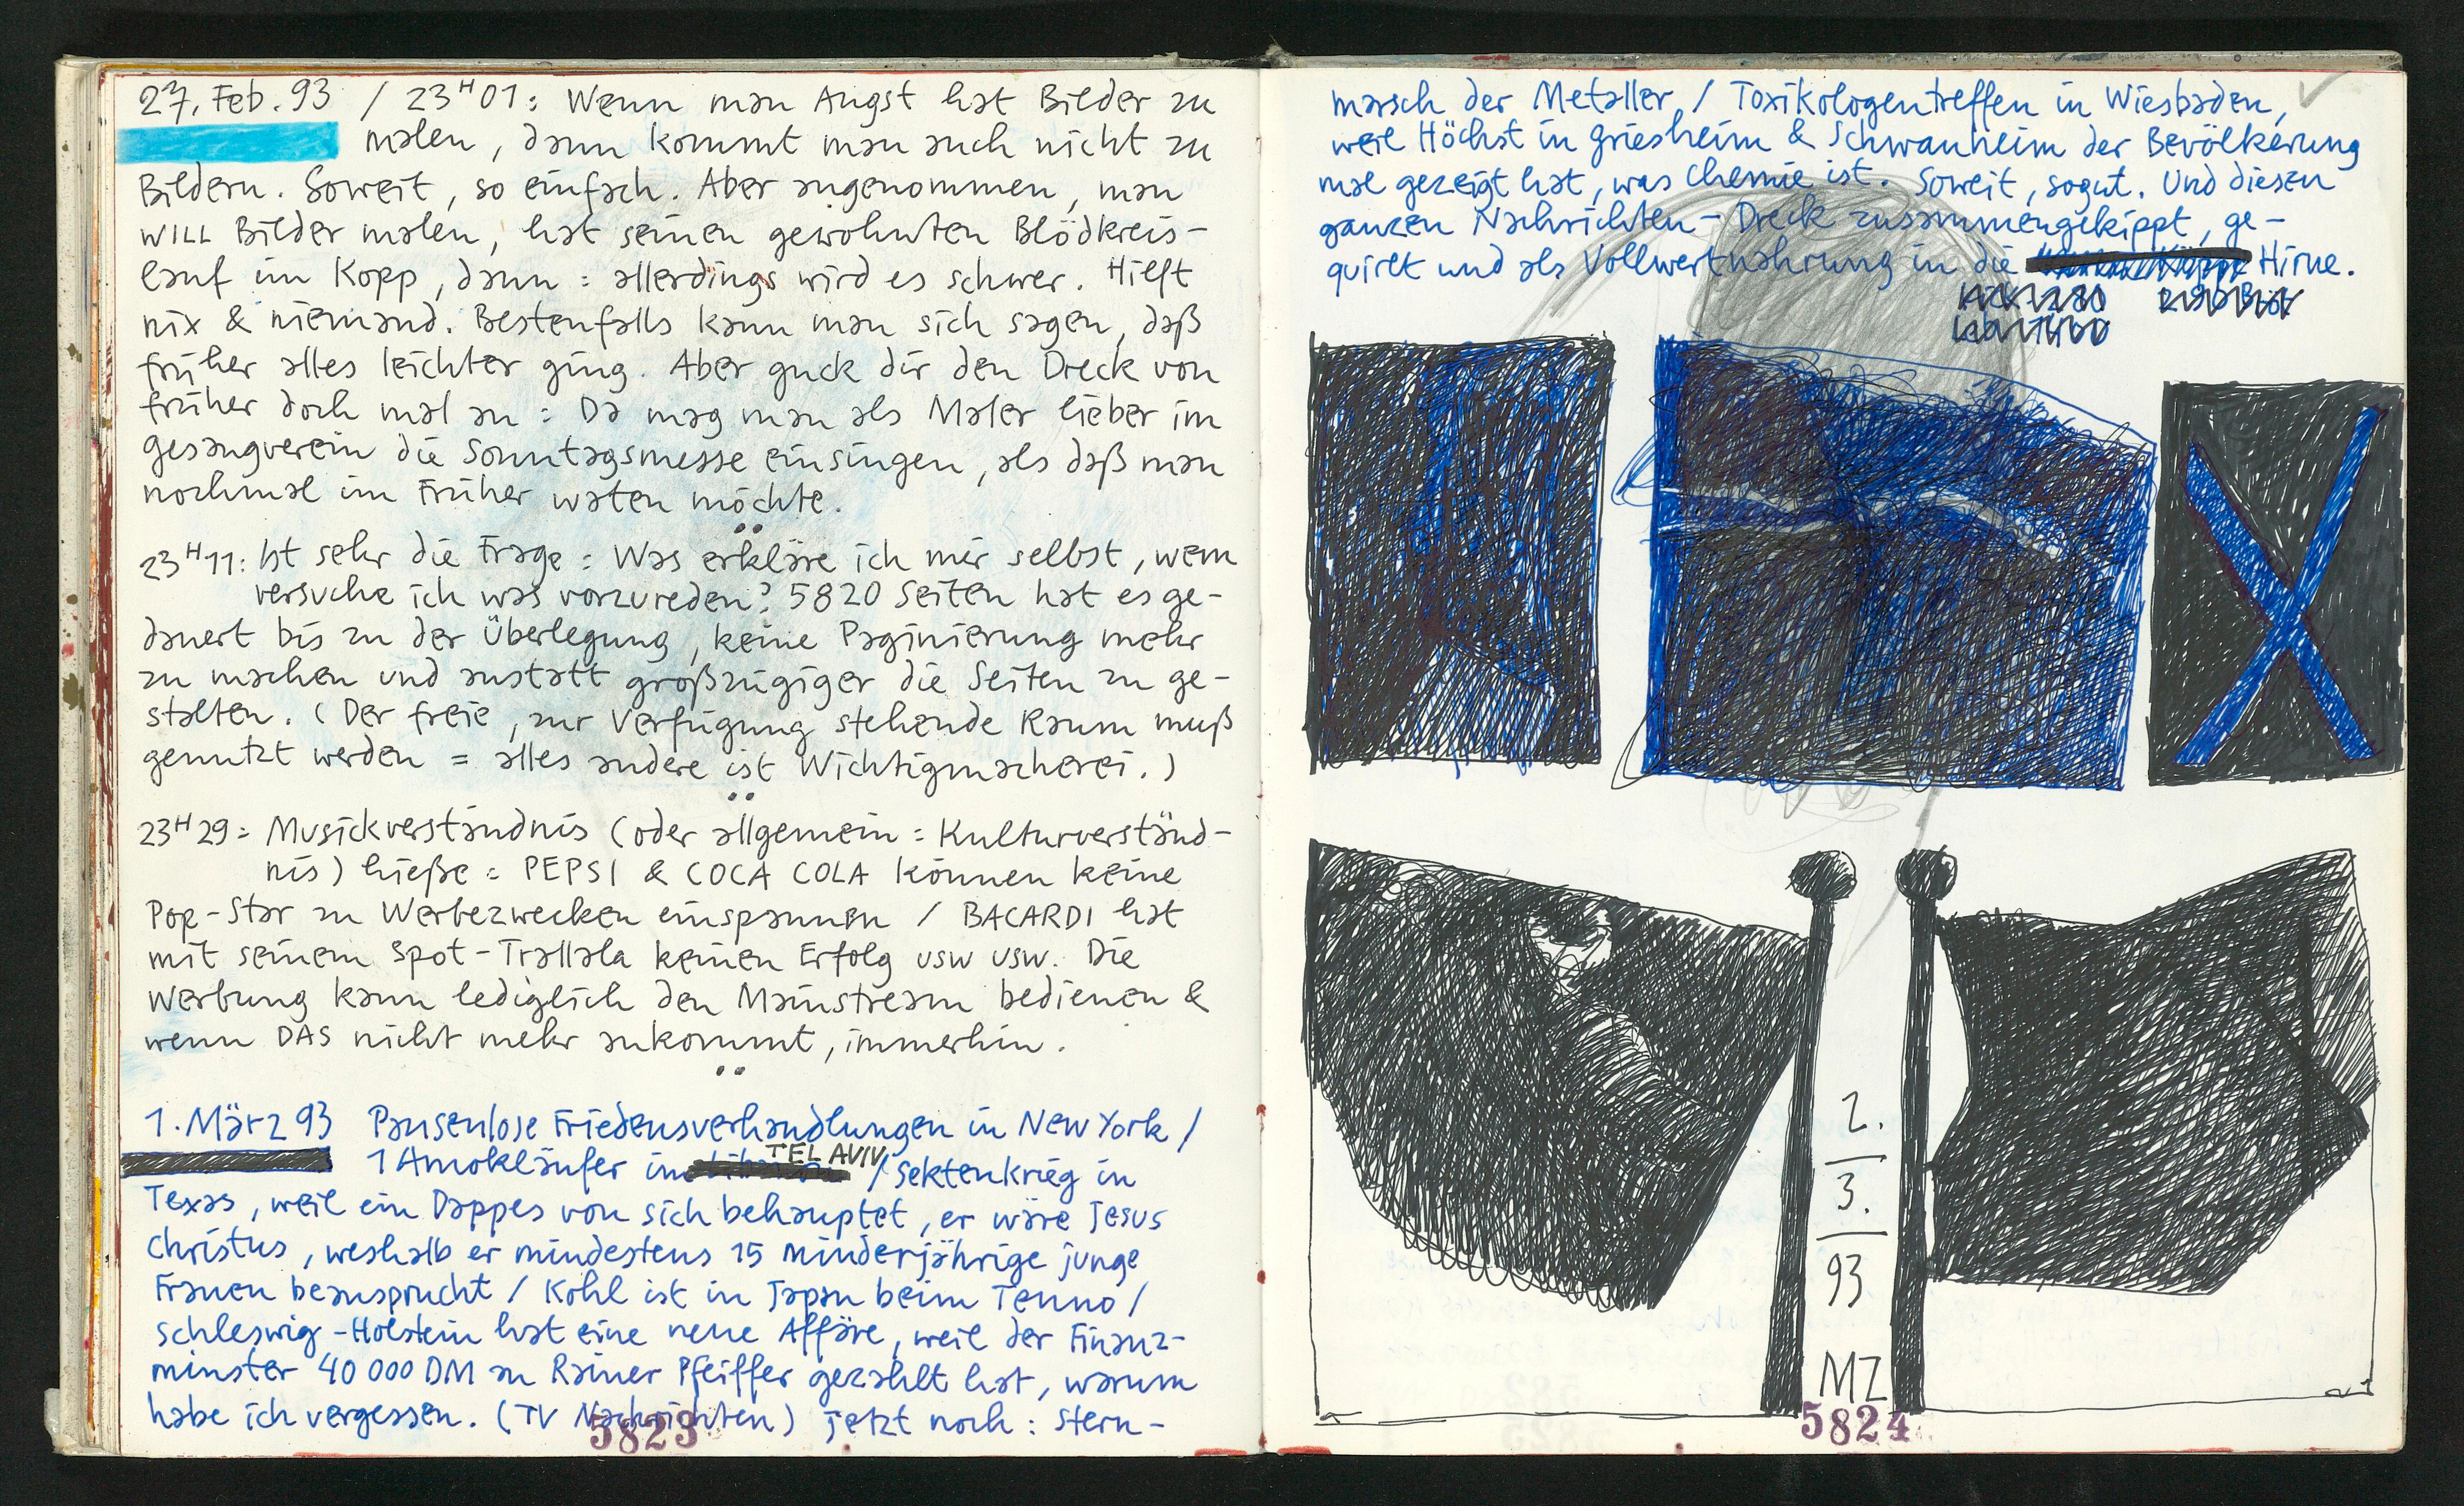 27. Feb. 93 / 23H01: Wenn man Angst hat Bilder zu
malen, dann kommt man auch nicht zu
Bildern. Soweit, so einfach. Aber angenommen, man
WILL Bilder malen, hat seinen gewohnten Blödkreis-
lauf im Kopp, dann: allerdings wird es schwer. Hilft
nix & niemand. Bestenfalls kann man sich sagen, daß
früher alles leichter ging. Aber guck dir den Dreck von
früher doch mal an: Da mag man als Maler lieber im
Gesangverein die Sonntagsmesse einsingen, als daß man
nochmal im Früher waten möchte.
23H11: Ist sehr die Frage: Was erkläre ich mir selbst, wem
versuche ich was vorzureden? 5820 Seiten hat es ge-
dauert bis zu der Überlegung, keine Paginierung mehr
zu machen und anstatt großzügiger die Seiten zu ge-
stalten. (Der freie, zur Verfügung stehende Raum muß
genutzt werden = alles andere ist Wichtigmacherei.)
23H29: Musickverständnis (oder allgemein: Kulturverständ-
nis) hieße: PEPSI & COCA COLA können keine
Pop-Star zu Werbezwecken einspannen / BACARDI hat
mit seinem Spot-Trallala keinen Erfolg usw usw. Die
Werbung kann lediglich den Mainstream bedienen &
wenn DAS nicht mehr ankommt, immerhin.
1. März 93 Pausenlose Friedensverhandlungen in New York /
1 Amokläufer in TEL AVIV / Sektenkrieg in
Texas, weil ein Dappes von sich behauptet, er wäre Jesus
Christus, weshalb er mindestens 15 minderjährige junge
Frauen beansprucht / Kohl ist in Japan beim Tenno /
Schleswig-Holstein hat eine neue Affäre, weil der Finanz-
minster 40 000 DM an Rainer Pfeiffer gezahlt hat, warum
habe ich vergessen. (TV Nachrichten) Jetzt noch: Stern-
5823
marsch der Metaller / Toxikologentreffen in Wiesbaden,
weil Höchst in Griesheim & Schwanheim der Bevölkerung
mal gezeigt hat, was Chemie ist. Soweit, sogut. Und diesen
ganzen Nachrichten-Dreck zusammengekippt, ge-
quirlt und als Vollwertnahrung in die Hirne.
2.
3.
93
MZ
5824